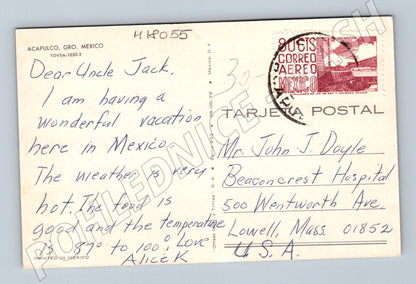 ACAPULCO, GRO. MEXICO
TOVSA-1020-3
4H8055
Dear Uncle Jack,
I am having a
wonderful vacation
here in Mexico.
The weather is very
hot. The tend is
good and the temperature
is 87° to 100°. Love
Alice K
PRINTED IN MEXICO
Mexico D.F.
30-
80 CTS
CORREO
AEREO
MEXICO
TARJETA POSTAL
Mr. John J Doyle
Beaconcrest Hospital
500 Wentworth Ave.
Lowell, Mass 01852
U.S.A.
POHLEDNICE